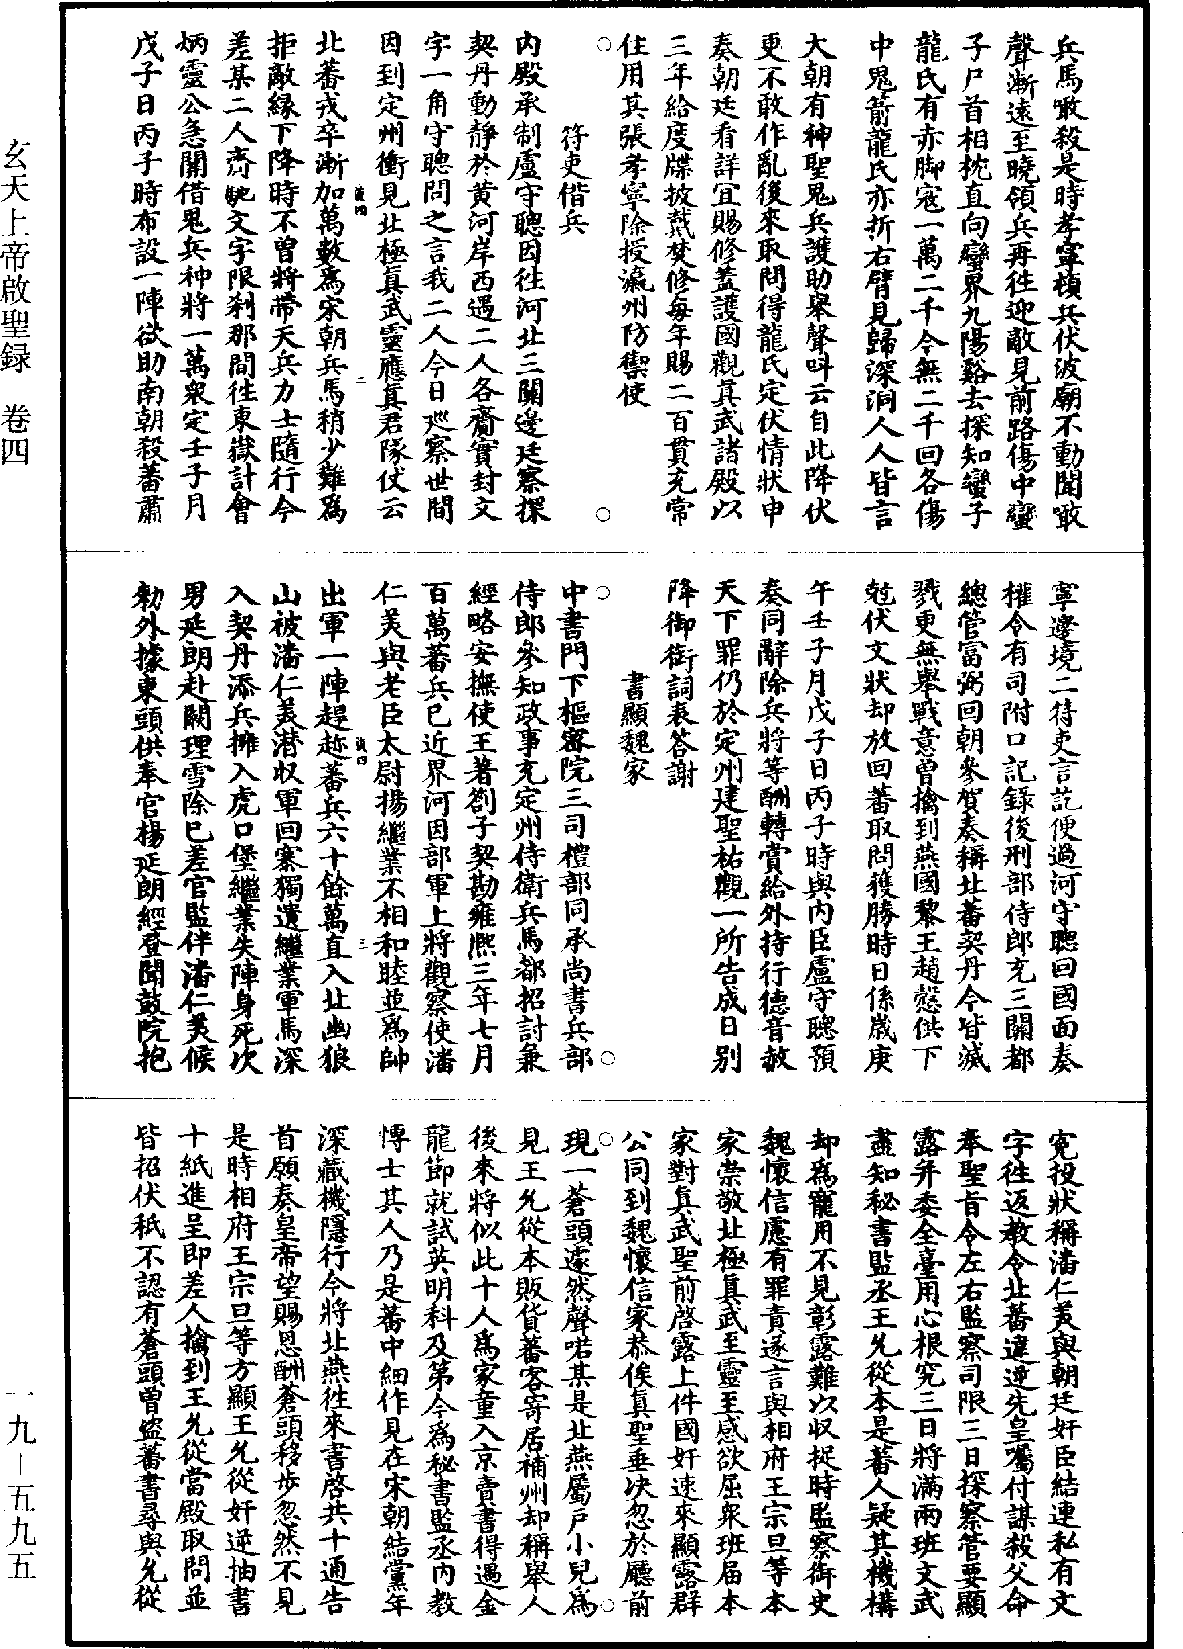 兵馬噉殺是時孝寧頓兵伏波廟不動聞噉
聲漸遠至曉領兵再往迎敵見前路傷中蠻
子尸首相枕直向蠻界九陽谿去探知蠻子
龍氏有赤脚寇一萬二千今無二千回各傷
中鬼箭龍氏亦折右臂見歸深洞人人皆言
大朝有神聖鬼兵護助舉聲叫云自此降伏
更不敢作亂後來取問得龍氏定伏情狀申
奏朝廷看詳宜賜修蓋護國觀真武諸殿以
三年給度牒披戴焚修每年賜二百貫充常
住用其張孝寧除授瀛州防禦使
○符吏借兵○
內殿承制盧守聰因往河北三關邊廷察探
契丹動靜於黃河岸西遇二人各齎實封文
字一角守聰問之言我二人今日巡察世間
因到定州衝見北極真武靈應真君隊仗云
北蕃戎卒漸加萬數為宋朝兵馬稍少難為
拒敵緣下降時不曾將帶天兵力士隨行今
差某二人齎馳文字限剎那間往東嶽計會
炳靈公急關借鬼兵神將一萬衆定壬子月
戊子日丙子時布設一陣欲助南朝殺蕃肅
寧邊境二符吏言訖便過河守聰回國面奏
權令有司附口記錄後刑部侍郎充三關都
總管富弼回朝參賀奏稱北蕃契丹今皆滅
戮更無舉戰意曾擒到燕國黎王趙慤供下
尅伏文狀却放回蕃取問獲勝時日係歲庚
午壬子月戊子日丙子時與內臣盧守聰預
奏同辭除兵將等酬轉賞給外持行德音赦
天下罪仍於定州建聖祐觀一所告成日別
降御銜詞表答謝
○書顯魏家○
中書門下樞密院三司禮部同承尚書兵部
侍郎參知政事充定州侍衛兵馬都招討兼
經略安撫使王著劄子契勘雍熙三年七月
百萬蕃兵已近界河因部軍上將觀察使潘
仁美與老臣太尉楊繼業不相和睦並為帥
出軍一陣趕趂蕃兵六十餘萬直入北幽狼
山被潘仁美潜收軍回寨獨遺繼業軍馬深
入契丹添兵擁入虎口堡繼業失陣身死次
男延朗赴闕理雪除已差官監伴潘仁美候
勅外據東頭供奉官楊延朗經登聞鼓院抱
冤投狀稱潘仁美與朝廷奸臣結連私有文
字往返教令北蕃違逆先皇囑付謀殺父命
奉聖旨令左右監察司限三日探察管要顯
露并委全臺用心根究三日將滿兩班文武
盡知秘書監丞王允從本是蕃人疑其機構
却為寵用不見彰露難以收捉時監察御史
魏懷信慮有罪責遂言與相府王宗旦等本
家崇敬北極真武至靈至感欲屈衆班屆本
家對真武聖前啓露上件國奸速來顯露群
公同到魏懷信家恭俟真聖垂決忽於廳前
現一蒼頭遽然聲喏某是北燕屬戶小兒為
見王允從本販貨蕃客寄居補州却稱舉人
後來將似此十人為家童入京賣書得過金
龍節就試英明科及第今為秘書監丞內教
博士其人乃是蕃中細作見在宋朝結黨年
深藏機隱行今將北燕往來書啓共十通告
首願奏皇帝望賜恩酬蒼頭移步忽然不見
是時相府王宗旦等方顯王允從奸逆抽書
十紙進呈即差人擒到王允從當殿取問並
皆招伏秪不認有蒼頭曾盜蕃書尋與允從
玄天上帝啟聖録　卷四
一九—五九五